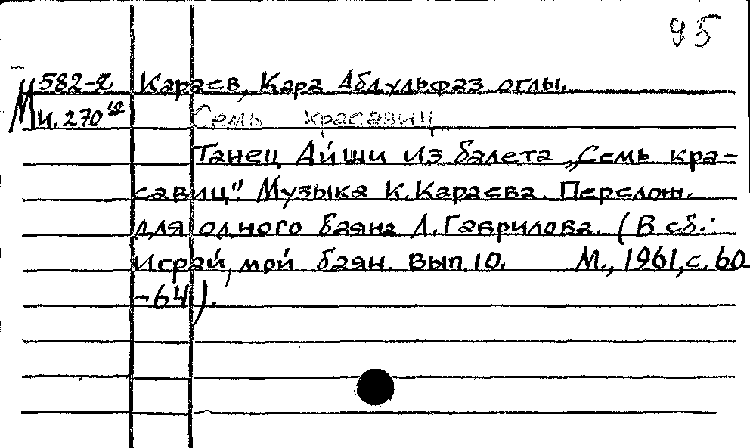 95
М 582-2 Караев, Кара Абдульфаз оглы.
И. 270 Семь красавиц
Танец Айши из балета „Семь кра-
савиц". Музыка К. Караева. Перелож.
для одного баяна Л. Гаврилова. (В сб.:
Играй, мой баян. Вып. 10. М., 1961, с. 60
-64).